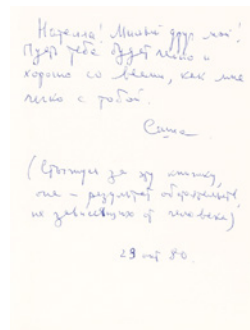 Нателла! Милый друг мой!
Пусть тебе будет легко и
хорошо со всеми, как мне
легко с тобой.
Саша
(Стыжусь за эту книжку,
она – результат обстоятельств,
не зависящих от человека)
29 окт 80.